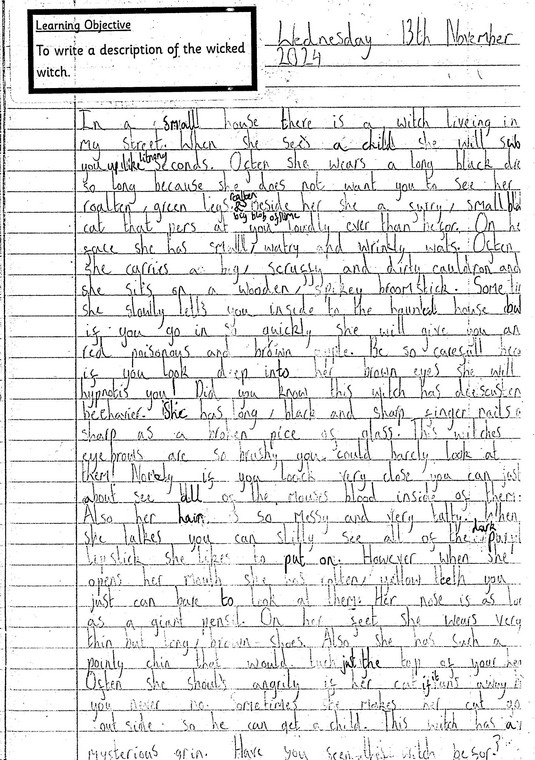 Learning Objective
To write a description of the wicked
witch.
Wednesday 13th November
2024
In a small house there is a witch liveing in
my street. When she sees a child she will
you up like literaly seconds. Octen she wears a long black
so long because she does not want you to see her
roalten, green legs. Beside her she a surry, small
cat that pers at you loudly ever than befor. On
face she has small, watry and wrinkly wats. Octen
she carries a big, scruffy and dirty cauldron and
she sits on a wooden, spikey broomstick. Some
she slowly lets you inside to the haunted house
if you go in so quickly she will give you an
red poisonous and brown apple. Be so carefull
if you look deep into her brown eyes she will
hypnotis you! Did you know this witch has
beehavier. She has long, black and sharp finger nails
sharp as a broken pice of glass. This witches
eyebrows are so brushy you could barely look at
them! Normaly if you look very close you can just
about see all of the mouses blood inside of them.
Also her hair is so messy and very tatty. When
she talkes you can stilly see all of the dark
lepstick she likes to put on. However when she
opens her mouth she has rotten, yellow teeth you
just can bare to look at them. Her nose is as
as a giant pensil. On her feet she wears very
thin but long, brown shoes. Also she has such a
pointy chin that would just the top of your
Octen she shouts angrily if her cat if it runs away
you never no. Sometimes she makes her cat go
out side so he can get a child. This witch has a
mysterious grin. Have you seen this witch befor?